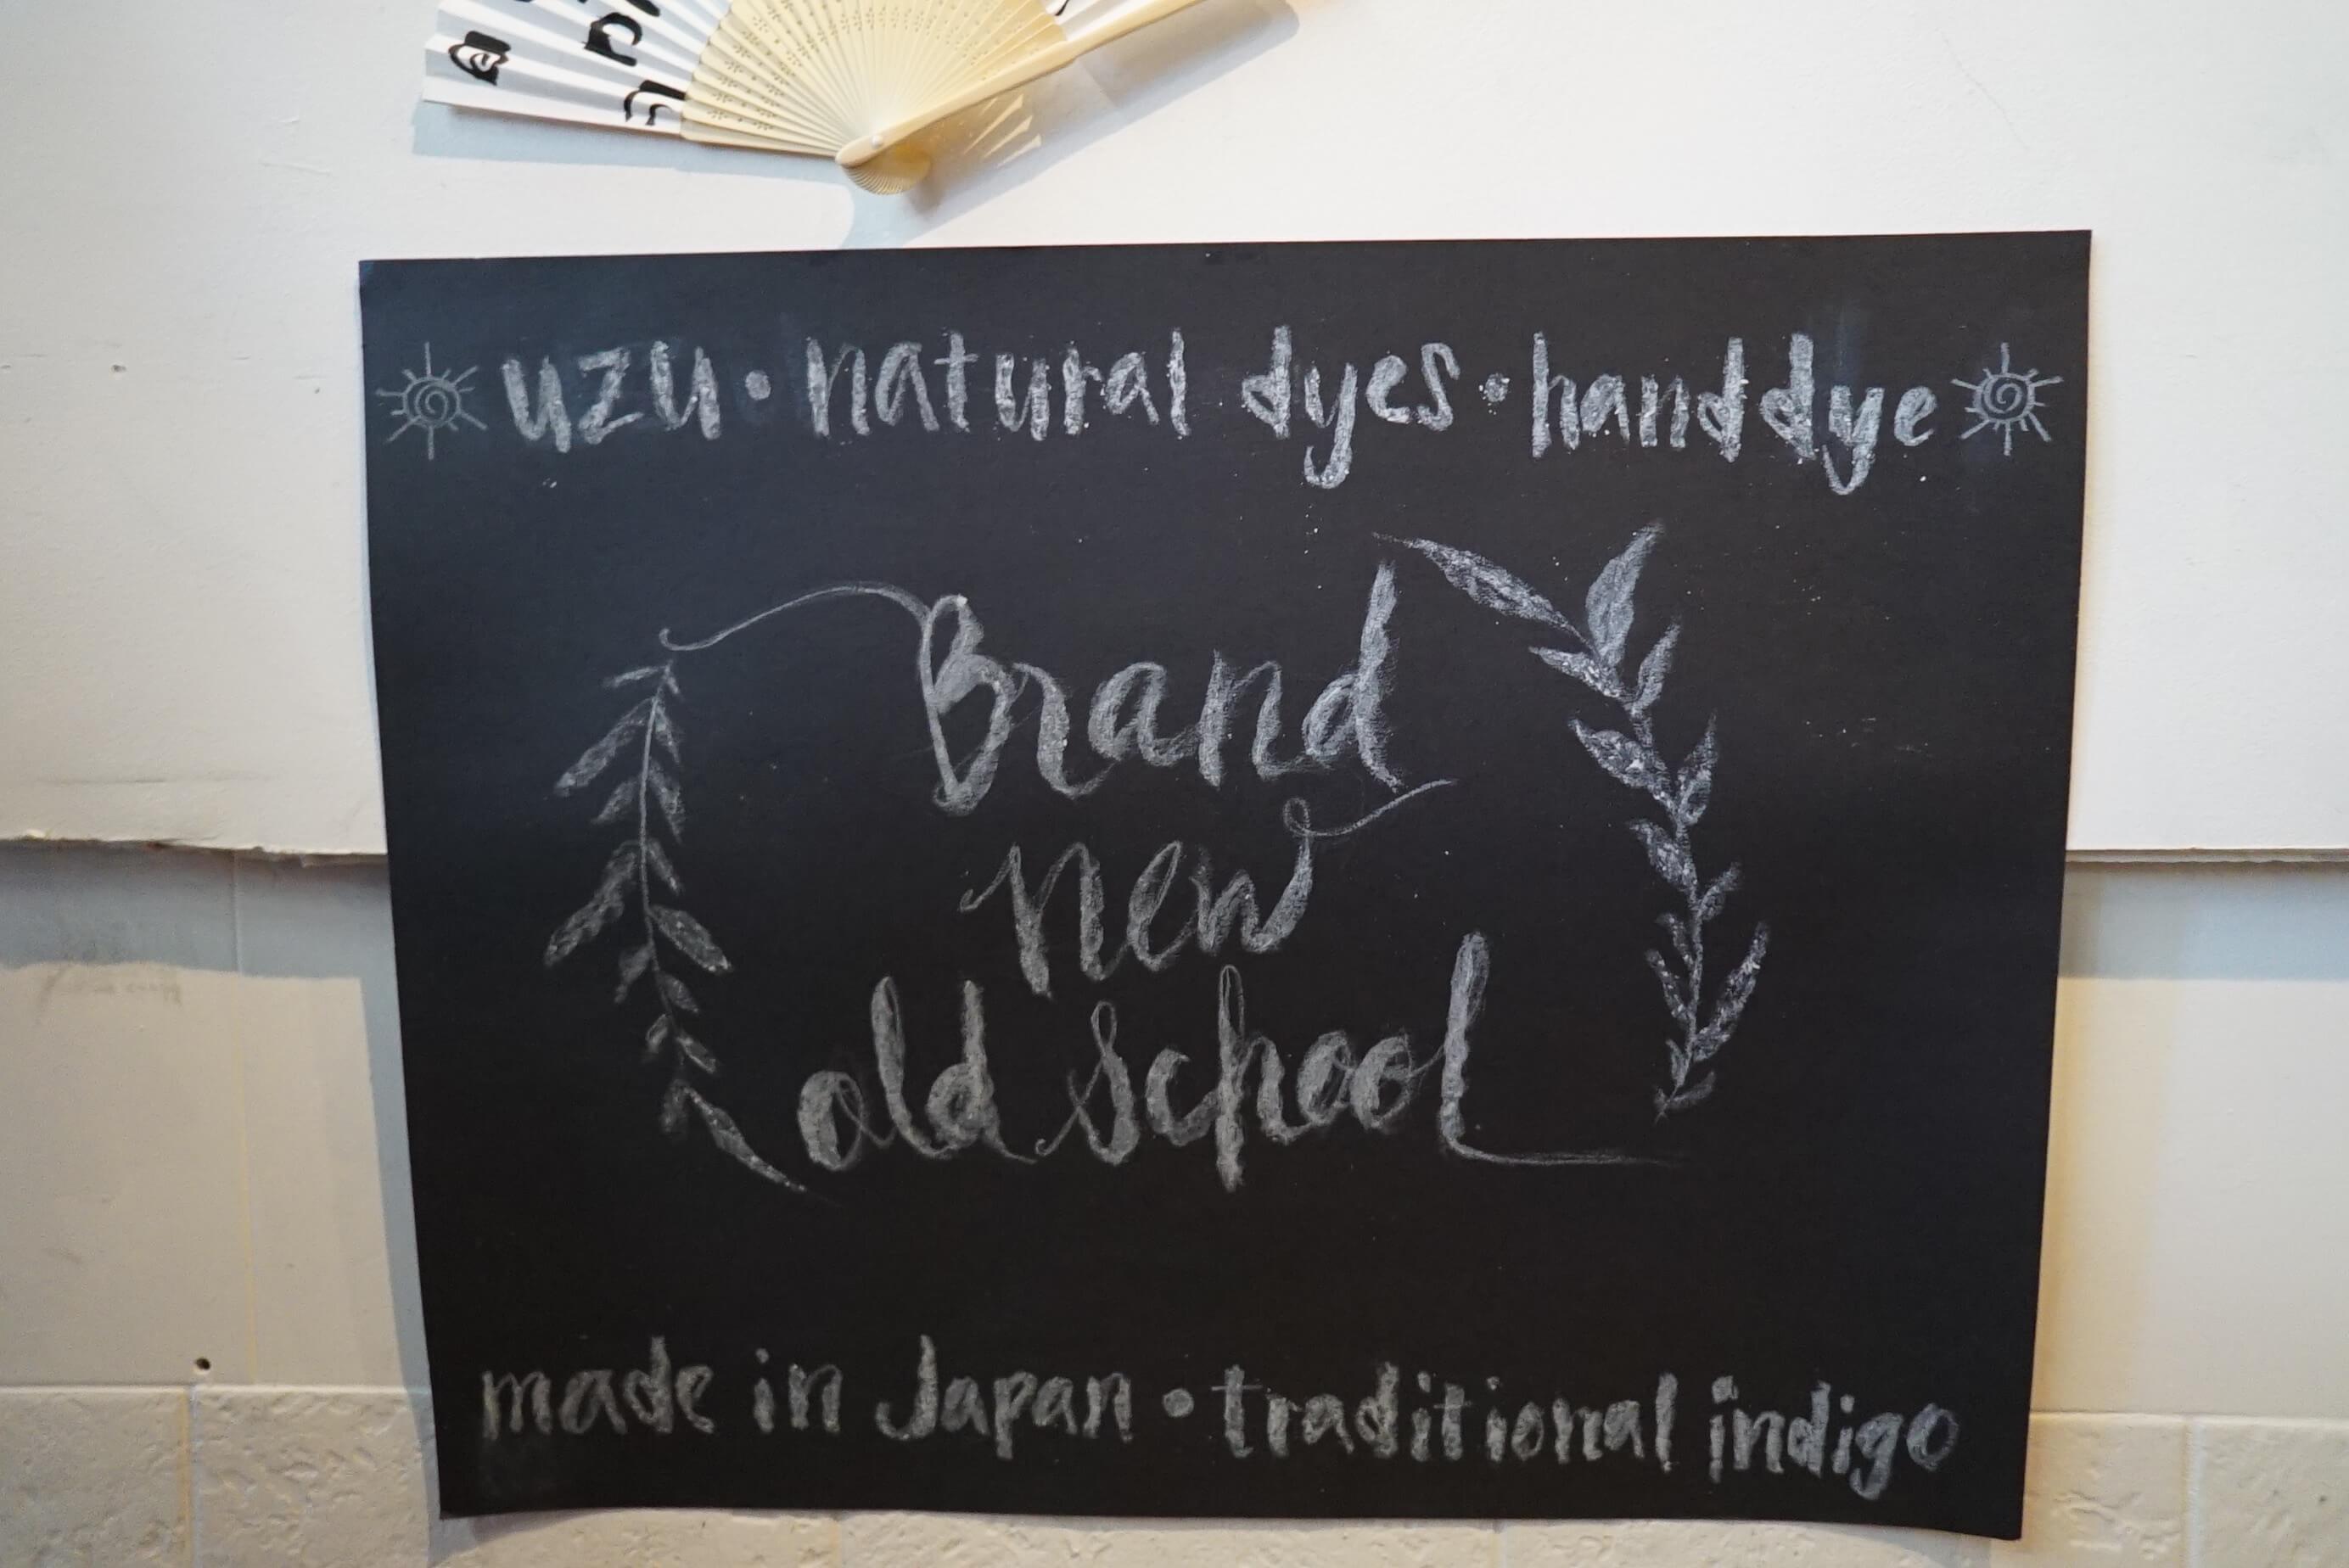 uzu • natural dyes • handdye
Brand
new
old school
made in Japan • traditional indigo